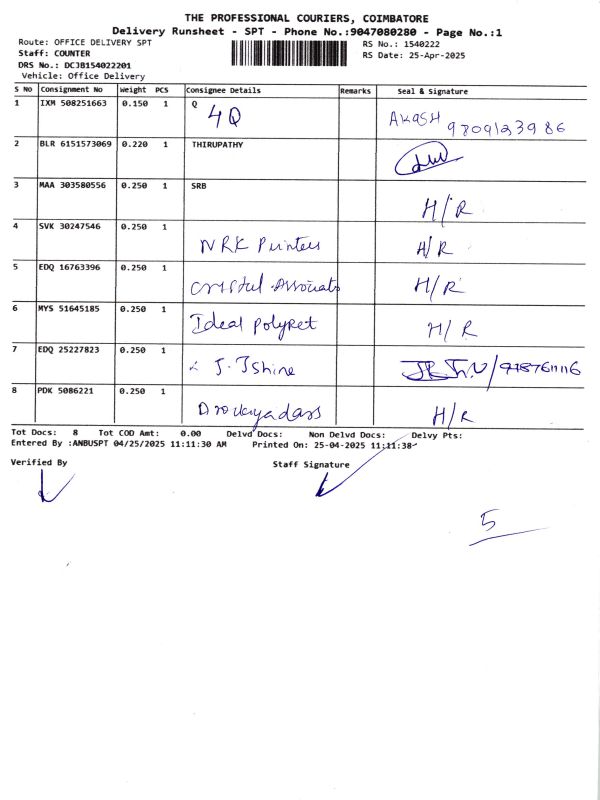 THE PROFESSIONAL COURIERS, COIMBATORE
Delivery Runsheet - SPT - Phone No.:9047080280 - Page No.:1
Route: OFFICE DELIVERY SPT
Staff: COUNTER
DRS No.: DCJB154022201
Vehicle: Office Delivery
RS No.: 1540222
RS Date: 25-Apr-2025
S NO Consignment No Weight PCS Consignee Details Remarks Seal & Signature
1 IXM 508251663 0.150 1 Q 4Q AKASH
2 BLR 6151573069 0.220 1 THIRUPATHY
3 MAA 303580556 0.250 1 SRB H/R
4 SVK 30247546 0.250 1 NRK Printers H/R
5 EDQ 16763396 0.250 1 Crystal Associats H/R
6 MYS 51645185 0.250 1 Ideal Polyket H/R
7 EDQ 25227823 0.250 1 J. Jshine
8 PDK 5086221 0.250 1 H/R
Tot Docs: 8 Tot COD Amt: 0.00 Delvd Docs: Non Delvd Docs: Delvy Pts:
Entered By :ANBUSPT 04/25/2025 11:11:30 AM Printed On: 25-04-2025 11:11:38
Verified By
Staff Signature
5